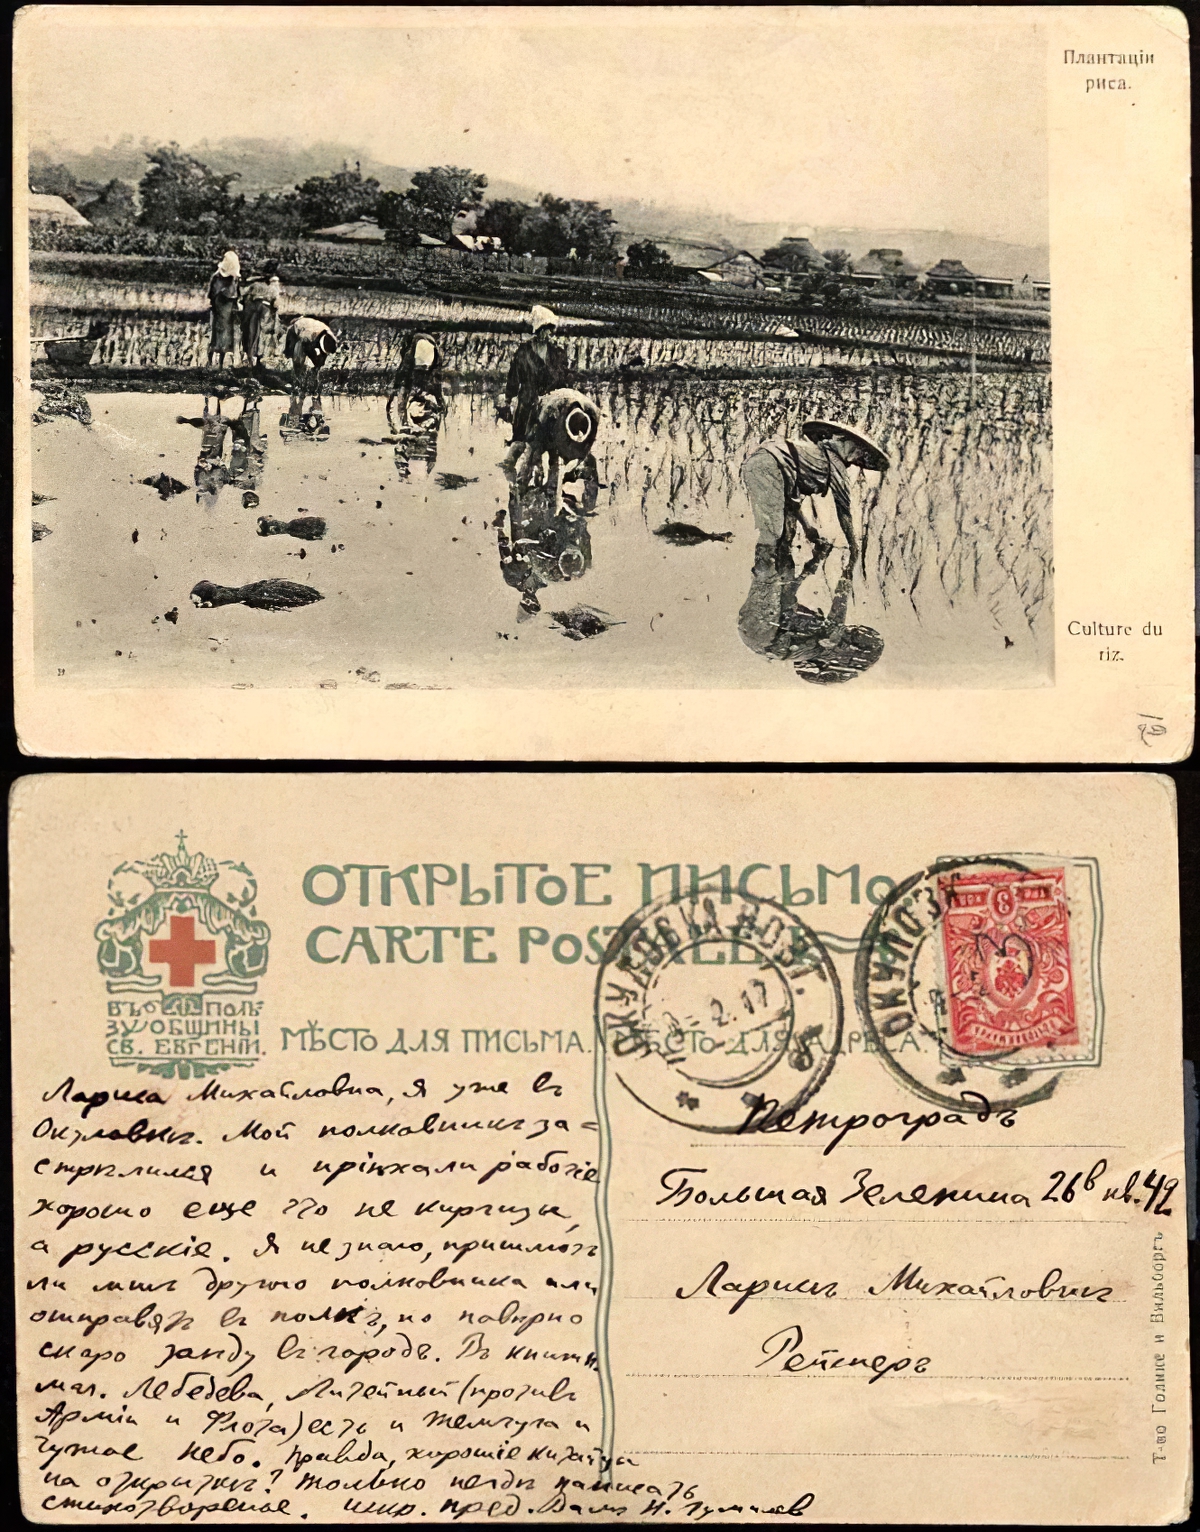 Плантаціи
риса.
Culture du
riz.
19
ОТКРЫТОЕ ПИСЬМО.
CARTE POSTALE
ВЪ ПОЛЬ
ЗУ ОБЩИНЫ
СВ. ЕВГЕНІИ.
МѢСТО ДЛЯ ПИСЬМА.
МѢСТО ДЛЯ АДРЕСА.
ОКУЛОВКА
2.17
8
ОКУЛОВКА
3
Лариса Михайловна, я уже въ
Окуловкѣ. Мой полковникъ за=
стрѣлился и пріѣхали рабочіе
хорошо еще что не киргизы,
а русскіе. Я не знаю, пришлютъ
ли мнѣ другого полковника или
отправятъ въ полкъ, но навѣрно
скоро заѣду въ городъ. Въ книжн.
маг. Лебедева, Литейный (противъ
Арміи и Флота) есть и Жемчуга и
Чужое Небо. Правда, хорошіе китайцы
на открыткѣ? Только негдѣ написать
стихотворенье. Вашъ Н. Гумилев
Петроградъ
Большая Зеленина 26в кв. 42
Ларисѣ Михайловнѣ
Рейснеръ
Т-во Голике и Вильборгъ